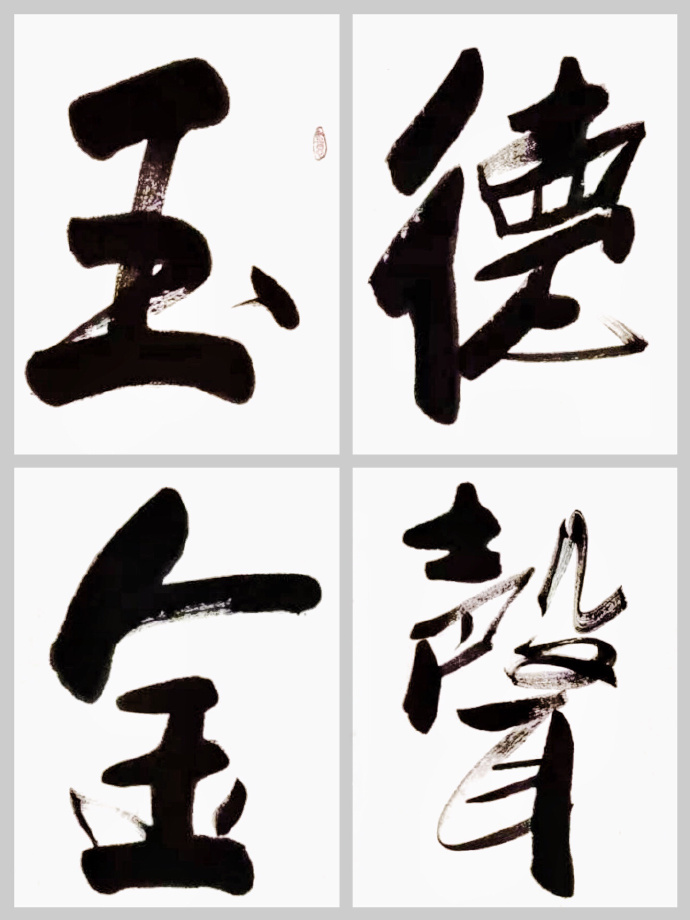 玉德
金聲